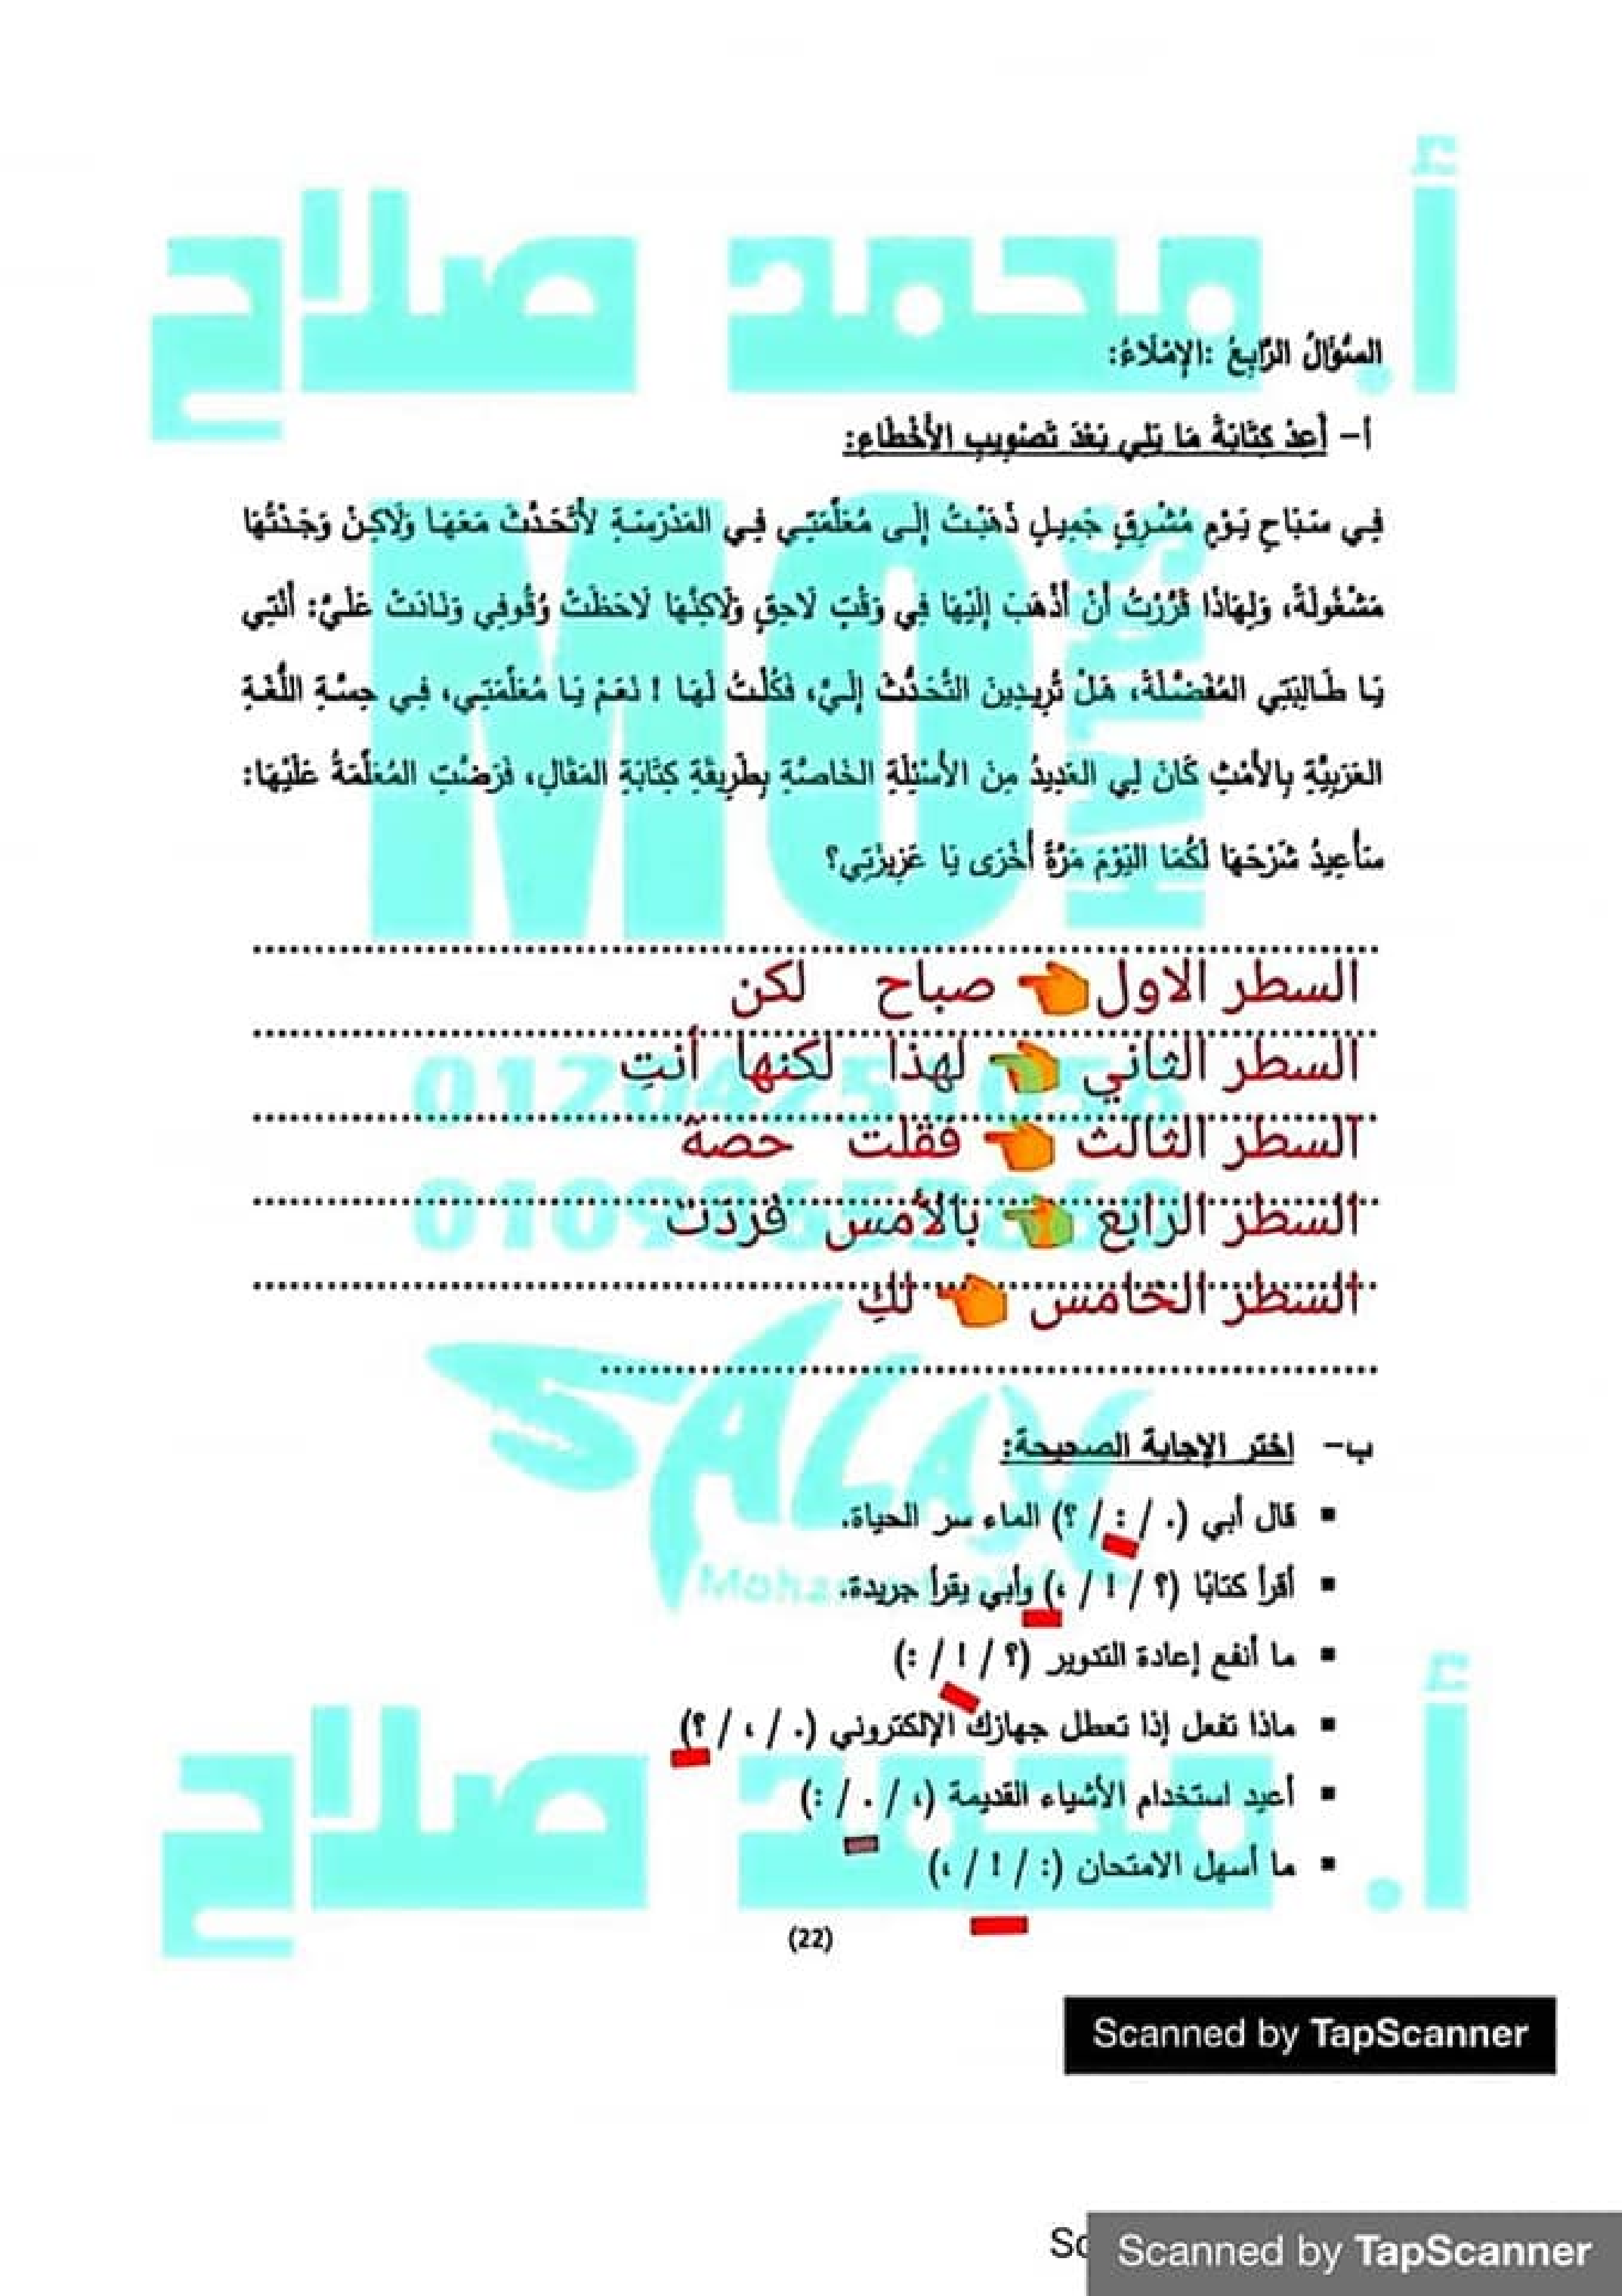 أ. محمد صلاح
السُّؤَالُ الرَّابِعُ :الإِمْلَاءُ:
أ- أَعِدْ كِتَابَةَ مَا يَلِي بَعْدَ تَصْوِيبِ الأَخْطَاءِ:
فِي سَبَاحِ يَوْمٍ مُشْرِقٍ جَمِيلٍ ذَهَبْتُ إِلَى مُعَلِّمَتِي فِي المَدْرَسَةِ لأَتَحَدَّثَ مَعَهَا وَلَاكِنْ وَجَدْتُهَا
مَشْغُولَةً، وَلِهَاذَا قَرَّرْتُ أَنْ أَذْهَبَ إِلَيْهَا فِي وَقْتٍ لَاحِقٍ وَلَاكِنَّهَا لَاحَظَتْ وُقُوفِي وَنَادَتْ عَلَيَّ: أَنْتِي
يَا طَالِبَتِي المُفَضَّلَةَ، هَلْ تُرِيدِينَ التَّحَدُّثَ إِلَيَّ، فَكُلْتُ لَهَا ! نَعَمْ يَا مُعَلِّمَتِي، فِي حِسَّةِ اللُّغَةِ
العَرَبِيَّةِ بِالأَمْثِ كَانَ لِي العَدِيدُ مِنَ الأَسْئِلَةِ الخَاصَّةِ بِطَرِيقَةِ كِتَابَةِ المَقَالِ، فَرَضَّتِ المُعَلِّمَةُ عَلَيْهَا:
سَأُعِيدُ شَرْحَهَا لَكُمَا اليَوْمَ مَرَّةً أُخْرَى يَا عَزِيزَتِي؟
السطر الاول صباح لكن
السطر الثاني لهذا لكنها أنتِ
السطر الثالث فقلت حصة
السطر الرابع بالأمس فردت
السطر الخامس لكِ
SALAH
ب- اختر الإجابة الصحيحة:
▪ قال أبي (. / : / ؟) الماء سر الحياة.
▪ أقرأ كتابًا (؟ / ! / ،) وأبي يقرأ جريدة.
▪ ما أنفع إعادة التدوير (؟ / ! / :)
▪ ماذا تفعل إذا تعطل جهازك الإلكتروني (. / ، / ؟)
▪ أعيد استخدام الأشياء القديمة (، / . / :)
▪ ما أسهل الامتحان (: / ! / ،)
أ. محمد صلاح
(22)
Scanned by TapScanner
Scanned by TapScanner